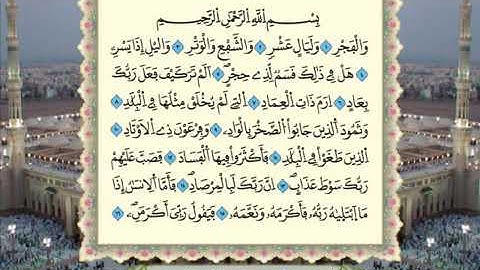 بِسْمِ اللَّهِ الرَّحْمَٰنِ الرَّحِيمِ
وَالْفَجْرِ ۝١ وَلَيَالٍ عَشْرٍ ۝٢ وَالشَّفْعِ وَالْوَتْرِ ۝٣ وَاللَّيْلِ إِذَا يَسْرِ
۝٤ هَلْ فِي ذَٰلِكَ قَسَمٌ لِّذِي حِجْرٍ ۝٥ أَلَمْ تَرَ كَيْفَ فَعَلَ رَبُّكَ
بِعَادٍ ۝٦ إِرَمَ ذَاتِ الْعِمَادِ ۝٧ الَّتِي لَمْ يُخْلَقْ مِثْلُهَا فِي الْبِلَٰدِ ۝٨
وَثَمُودَ الَّذِينَ جَابُوا الصَّخْرَ بِالْوَادِ ۝٩ وَفِرْعَوْنَ ذِي الْأَوْتَادِ ۝١٠
الَّذِينَ طَغَوْا فِي الْبِلَٰدِ ۝١١ فَأَكْثَرُوا فِيهَا الْفَسَادَ ۝١٢ فَصَبَّ عَلَيْهِمْ
رَبُّكَ سَوْطَ عَذَابٍ ۝١٣ إِنَّ رَبَّكَ لَبِالْمِرْصَادِ ۝١٤ فَأَمَّا الْإِنسَٰنُ إِذَا
مَا ابْتَلَىٰهُ رَبُّهُ فَأَكْرَمَهُ وَنَعَّمَهُ ۝١٥ فَيَقُولُ رَبِّيَ أَكْرَمَنِ ۝١٦